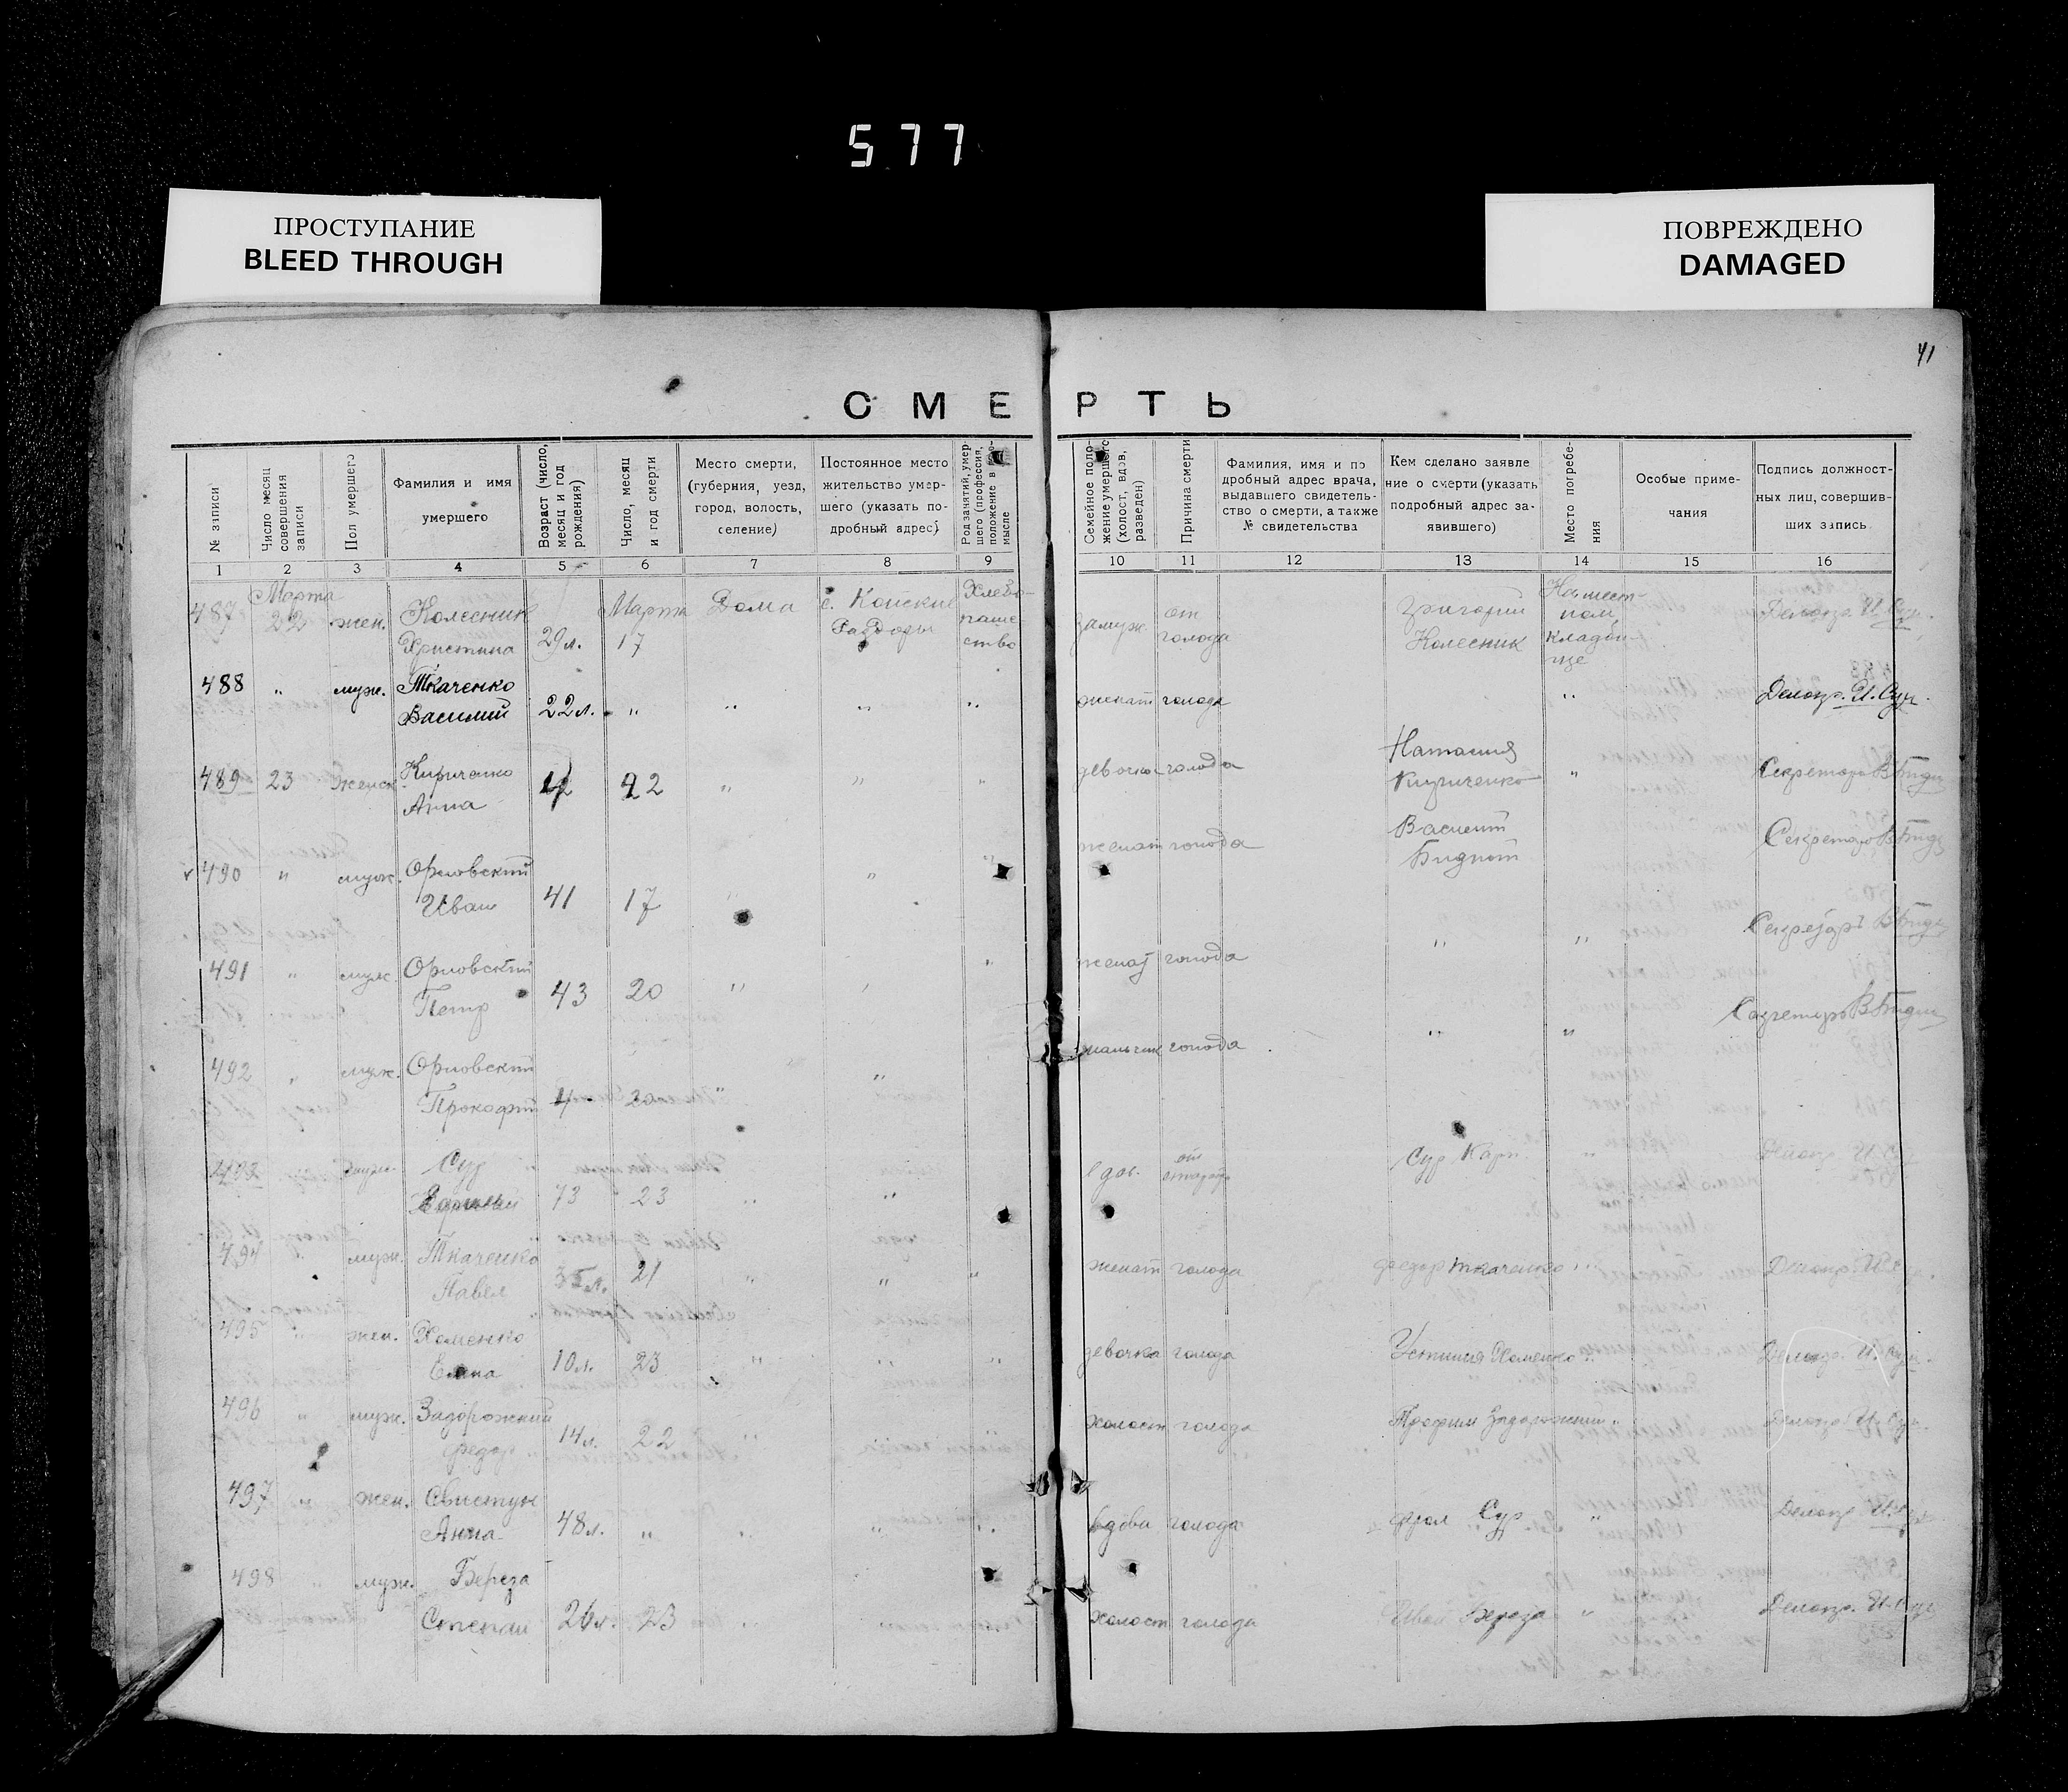 577
ПРОСТУПАНИЕ
BLEED THROUGH
ПОВРЕЖДЕНО
DAMAGED
41
СМЕРТЬ
№ записи
Число месяц совершения записи
Пол умершего
Фамилия и имя умершего
Возраст (число, месяц и год рождения)
Число, месяц и год смерти
Место смерти, (губерния, уезд, город, волость, селение)
Постоянное место жительство умершего (указать подробный адрес)
Род занятий, умершего (профессия, положение в промысле
Семейное положение умершего (холост, вдов, разведен)
Причина смерти
Фамилия, имя и подробный адрес врача, выдавшего свидетельство о смерти, а также № свидетельства
Кем сделано заявление о смерти (указать подробный адрес заявившего)
Место погребения
Особые примечания
Подпись должностных лиц, совершивших запись
1 2 3 4 5 6 7 8 9 10 11 12 13 14 15 16
487 Марта 22 жен. Колесник Христина 29 л. Марта 17 Дома с. Конские Раздоры Хлебопашество замуж. от голода Григорий Колесник На местном кладбище Делопр. И. Сур.
488 " муж. Ткаченко Василий 22 л. " " " " женат голода " Делопр. И. Сур.
489 23 женск Кириченко Анна 22 " " " девочка голода Кириченко " Секретарь
490 " муж. Орловский Иван 41 17 " " " женат голода Секретарь
491 " муж. Орловский Петр 43 20 " " " женат голода " " Секретарь
492 " муж. Орловский Прокофий 4 20 " " мальчик голода " " Секретарь
493 муж. Сур 73 23 " " вдов. от Сур Карп " Делопр. И.
494 " муж. Ткаченко Павел 35 л. 21 " " " женат голода Федор Ткаченко " Делопр. И.
495 " жен. Хоменко 10 л. 23 " " " девочка голода Устиния Хоменко " Делопр. И. Сур.
496 " муж. Задорожний Федор 14 л. 22 " " холост голода Трофим Задорожний " Делопр. И. Сур.
497 " жен. Свистун Анна 48 л. " " " " вдова голода Фрол Сур " Делопр. И. Сур
498 " муж. Береза Степан 26 л. 23 " " холост голода Иван Береза " Делопр. И. Сур